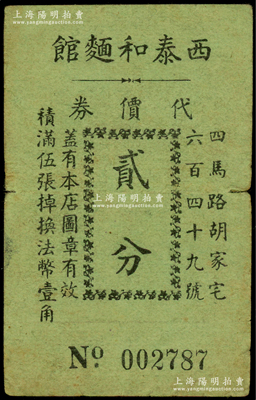 上海陽明拍賣
www.ymauction.com
館麵和泰西
券價代
四馬路胡家宅
六百四十九號
貳分
蓋有本店圖章有效
積滿伍張掉換法幣壹角
Nº 002787
上海陽明拍賣
www.ymauction.com